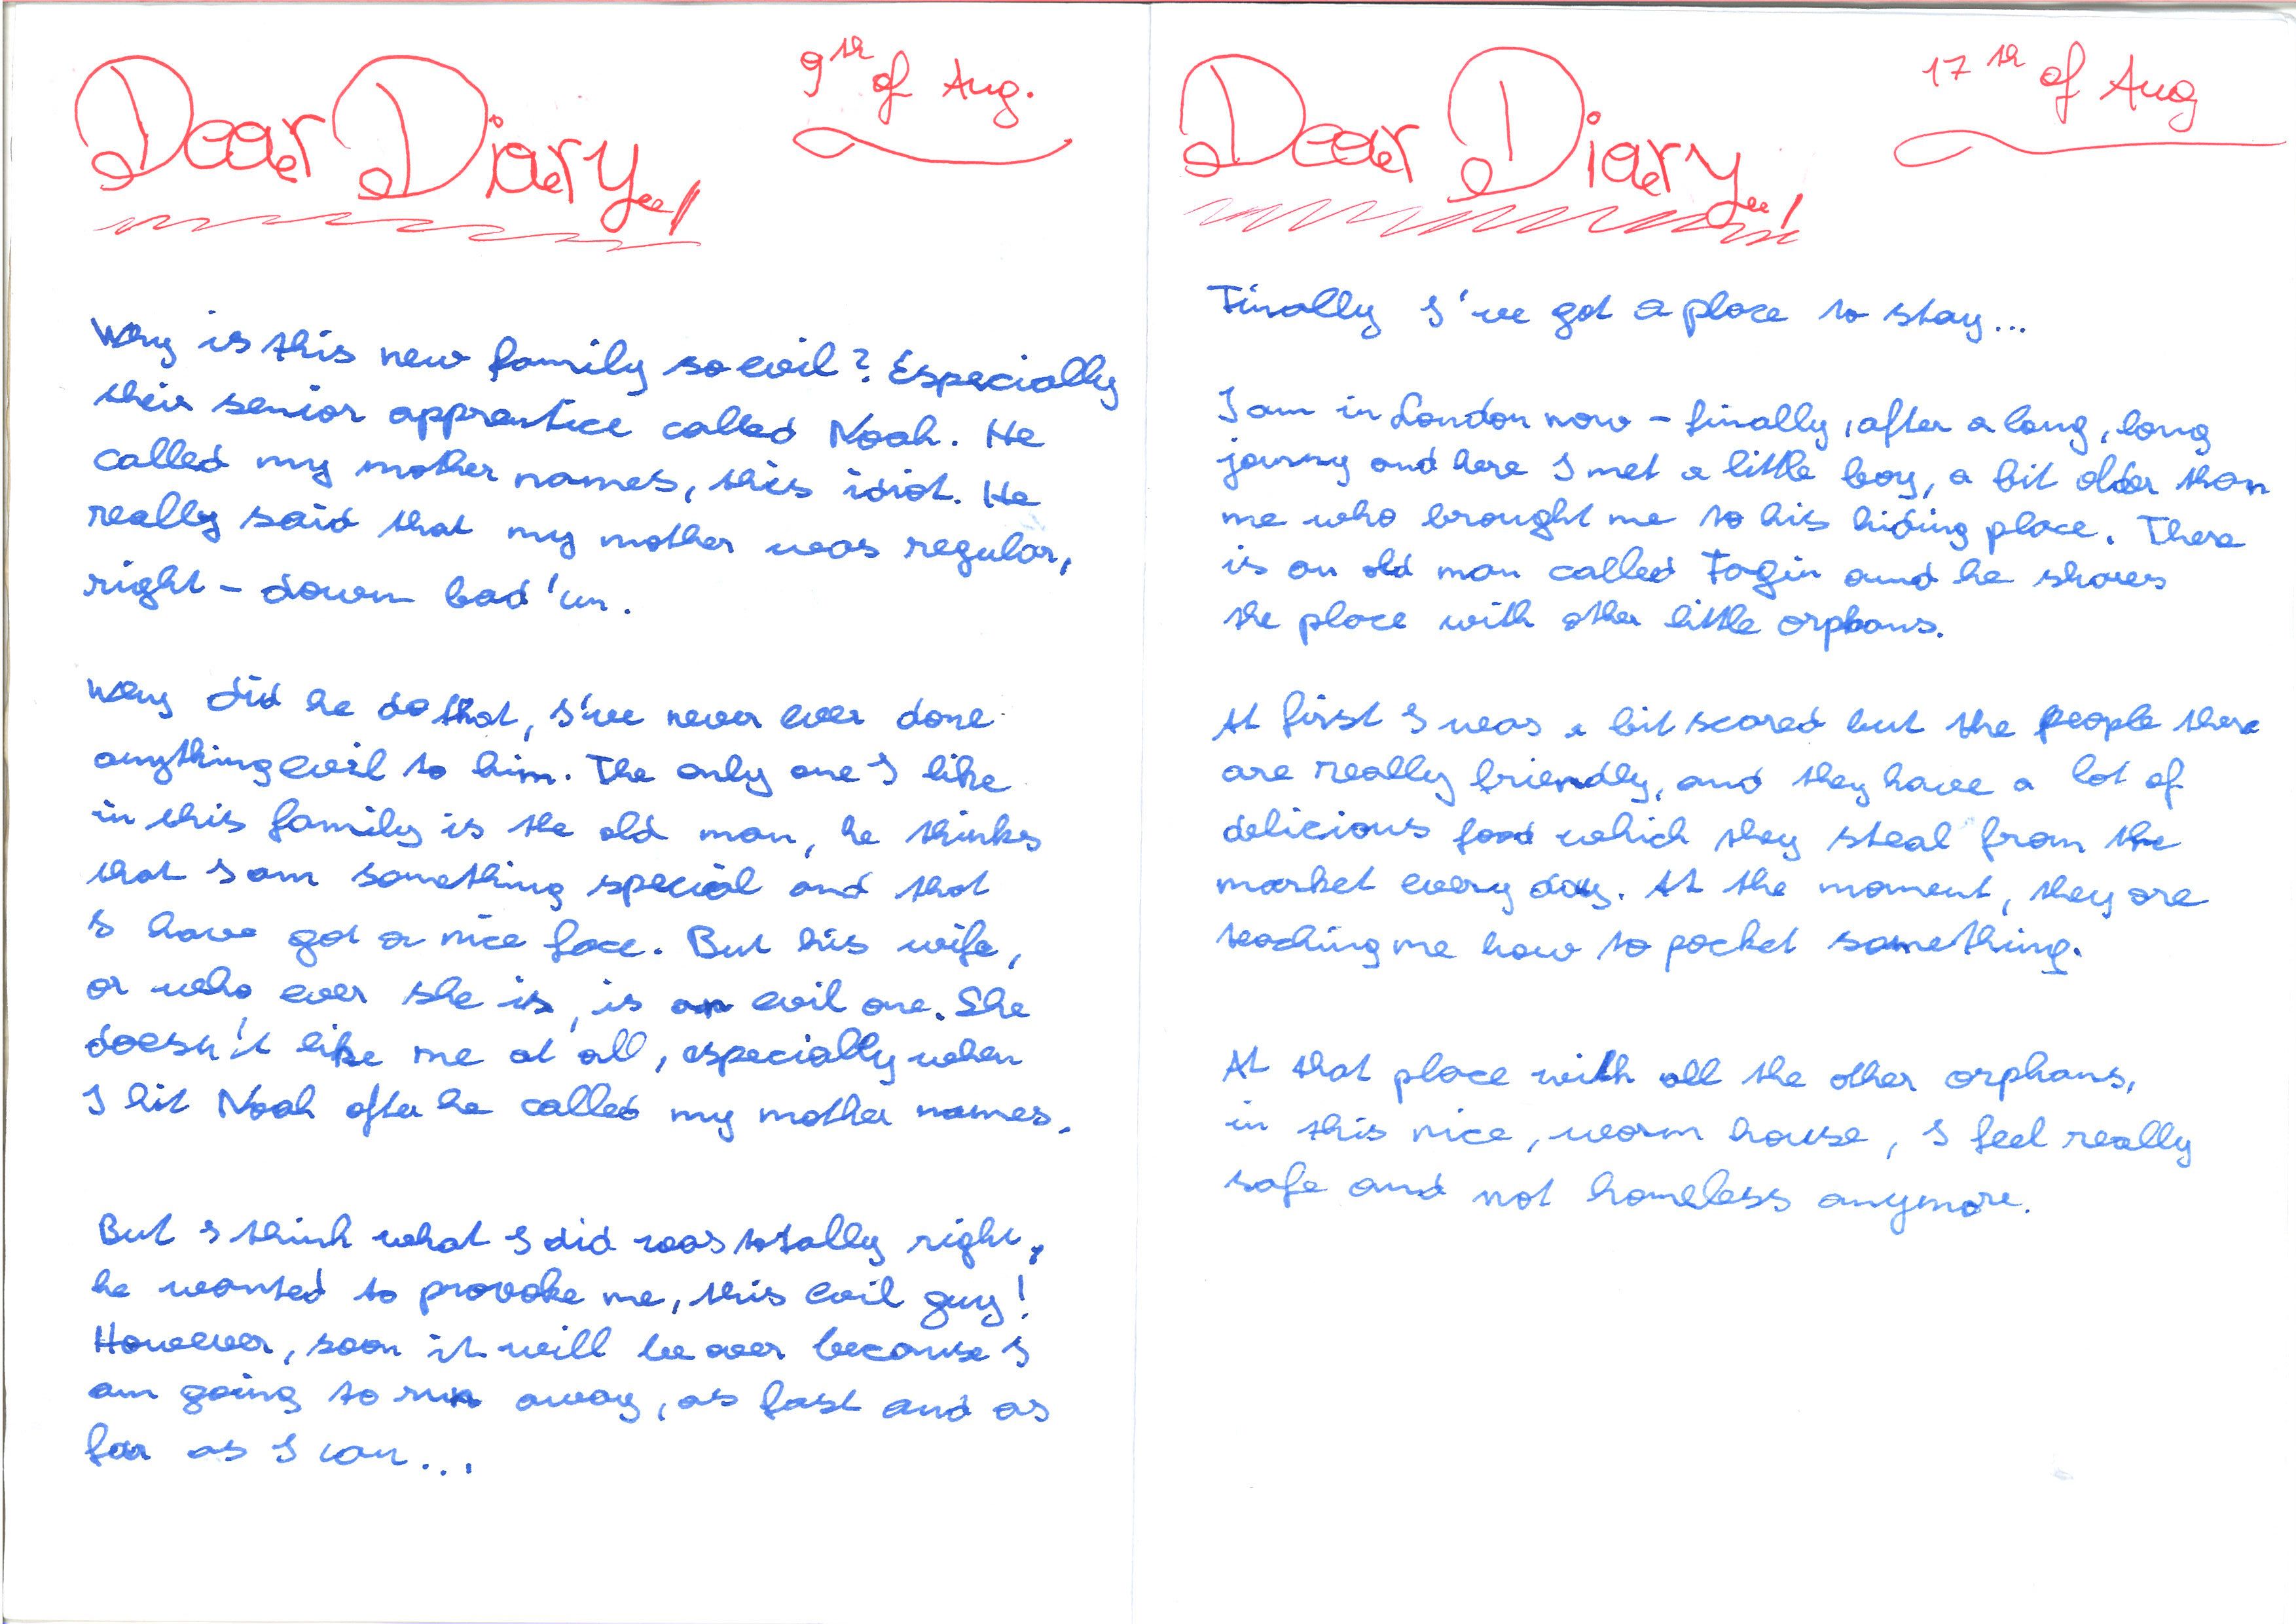 Dear Diary!
9th of Aug.
Why is this new family so evil? Especially
their senior apprentice called Noah. He
called my mother names, this idiot. He
really said that my mother was regular,
right-down bad 'un.
Why did he do that, I've never ever done
anything evil to him. The only one I like
in this family is the old man, he thinks
that I am something special and that
I have got a nice face. But his wife,
or who ever she is, is an evil one. She
doesn't like me at all, especially when
I hit Noah after he called my mother names.
But I think what I did was totally right,
he wanted to provoke me, this evil guy!
However, soon it will be over because I
am going to run away, as fast and as
far as I can...
Dear Diary!
17th of Aug
Finally I've got a place to stay...
I am in London now - finally, after a long, long
journy and here I met a little boy, a bit older than
me who brought me to his hiding place. There
is an old man called Fagin and he shares
the place with other little orphans.
At first I was a bit scared but the people there
are really friendly, and they have a lot of
delicious food which they steal from the
market every day. At the moment, they are
teaching me how to pocket something.
At that place with all the other orphans,
in this nice, warm house, I feel really
safe and not homeless anymore.